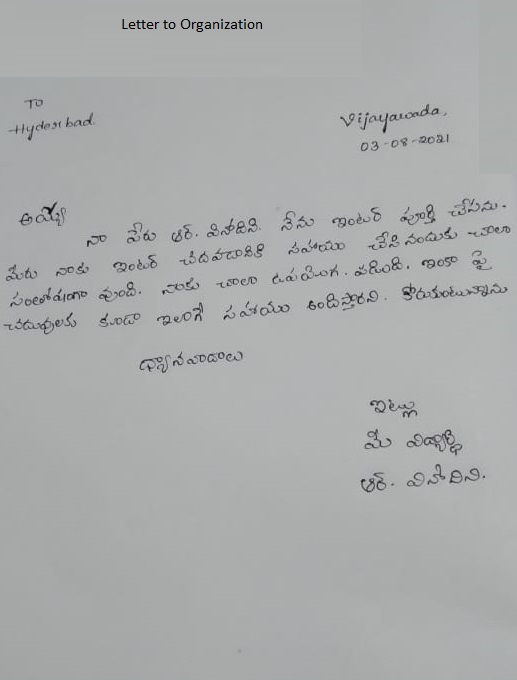 Letter to Organization
To
Hyderabad
Vijayawada,
03-08-2021
అయ్యా
నా పేరు ఆర్. వినోదిని. నేను ఇంటర్ పూర్తి చేసాను.
మీరు నాకు ఇంటర్ చదవడానికి సహాయం చేసినందుకు చాలా
సంతోషంగా వుంది. నాకు చాలా ఉపయోగ. పడింది. ఇంకా పై
చదువులకు కూడా ఇలాగే సహాయం అందిస్తారని. కోరుకుంటున్నాను
ధ్యానవాదాలు
ఇట్లు
మీ విద్యార్థి
ఆర్. వినోదిని.